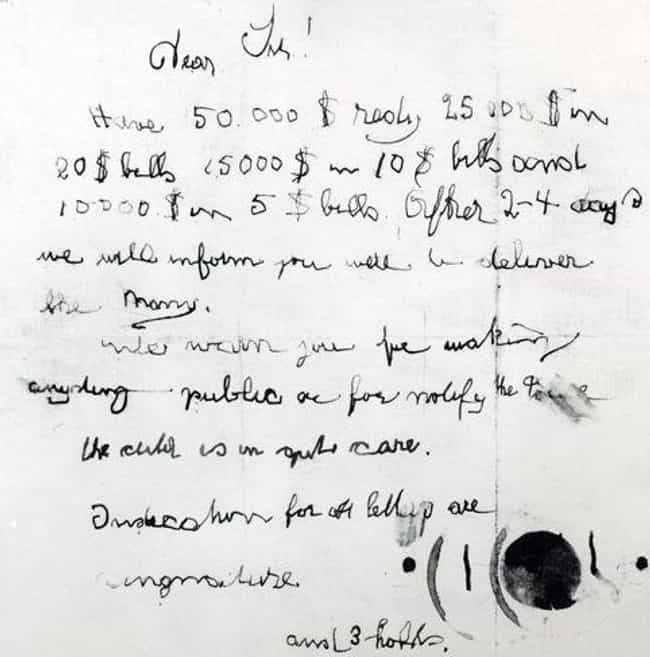 Dear Sir!
Have 50.000 $ redy 25 000 $ in
20 $ bills 15000 $ in 10 $ bills and
10000 $ in 5 $ bills. After 2-4 days
we will inform you were to deliver
the Mony.
We warn you for making
anyding public or for notify the Police
the child is in gut care.
Indication for all letters are
singnature
and 3 holds.